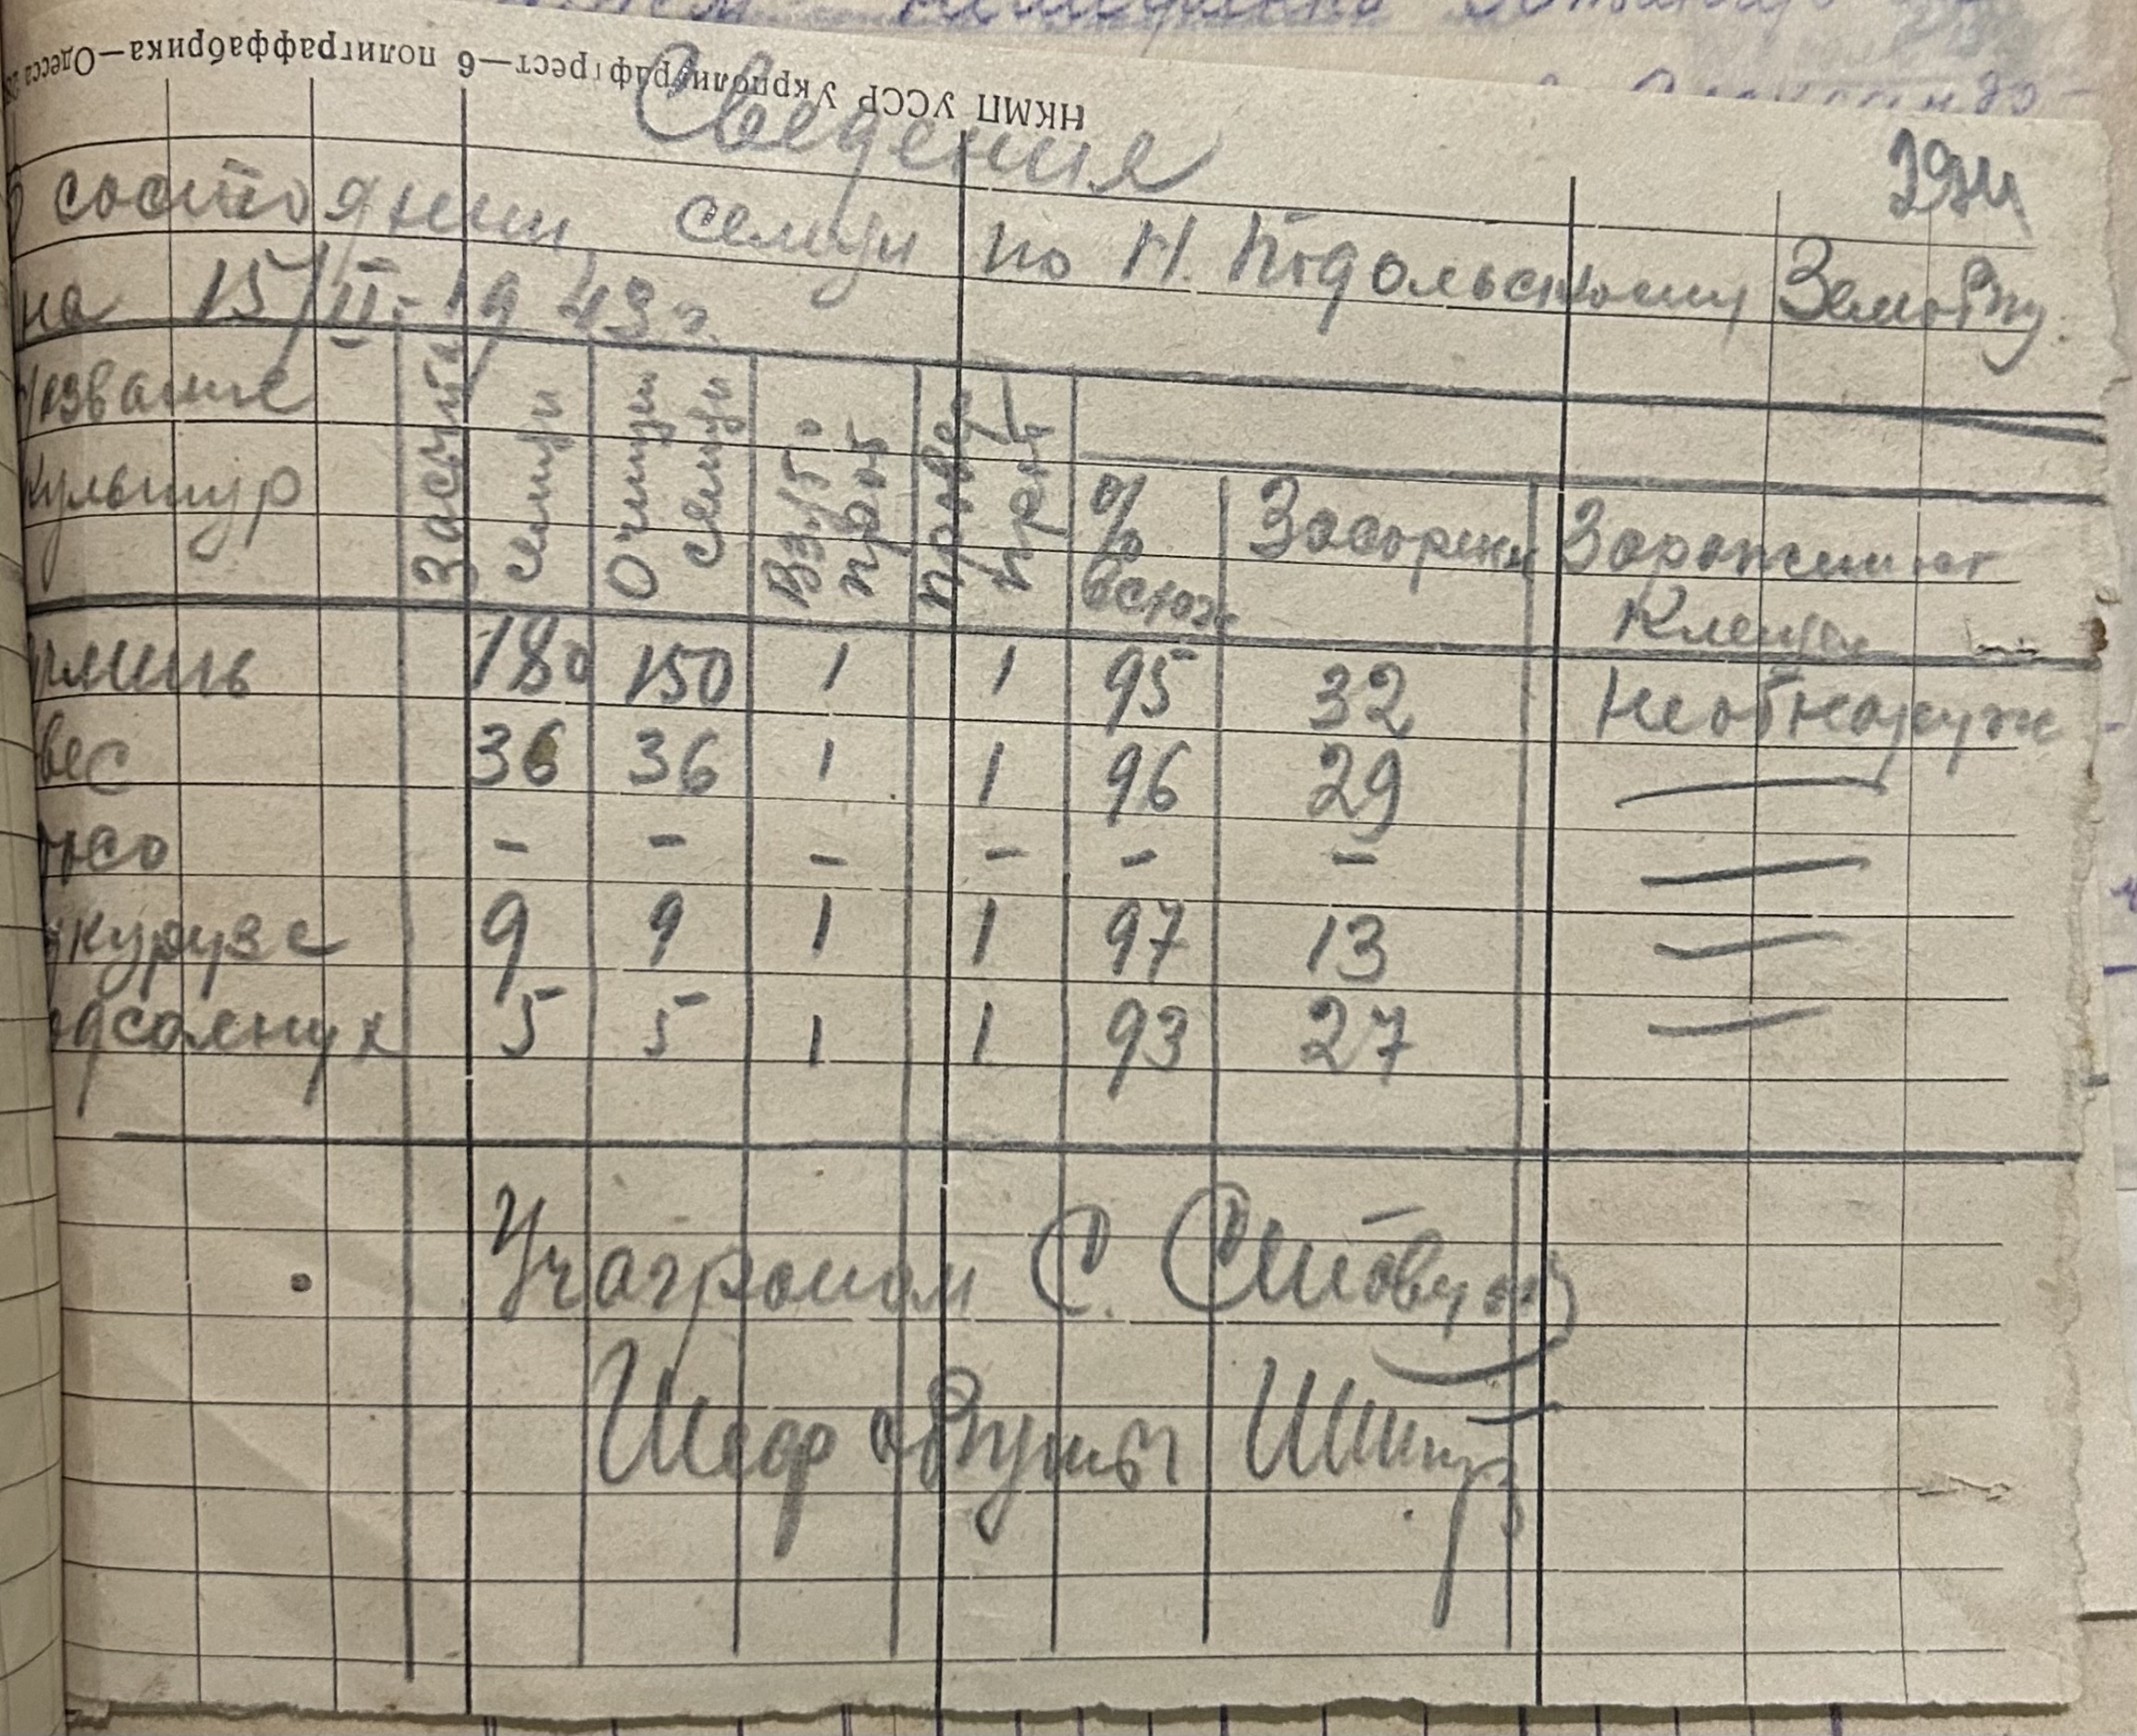 НКМП УССР Укрполиграфтрест—6 полиграффабрика—Одесса
Сведения
294
о состоянии семян по Н. Подольскому
на 15/II-1943 г.
Название культур
Засып семян
Очищен семян
Взято проб
Провед
% всхож
Засорен
Заражение Клещем
ячмень 180 150 1 1 95 32 Необнаруж
Овес 36 36 1 1 96 29 —
просо - - - - - - —
Кукуруза 9 9 1 1 97 13 —
Подсолнух 5 5 1 1 93 27 —
Уч агроном С.
Шеф общины